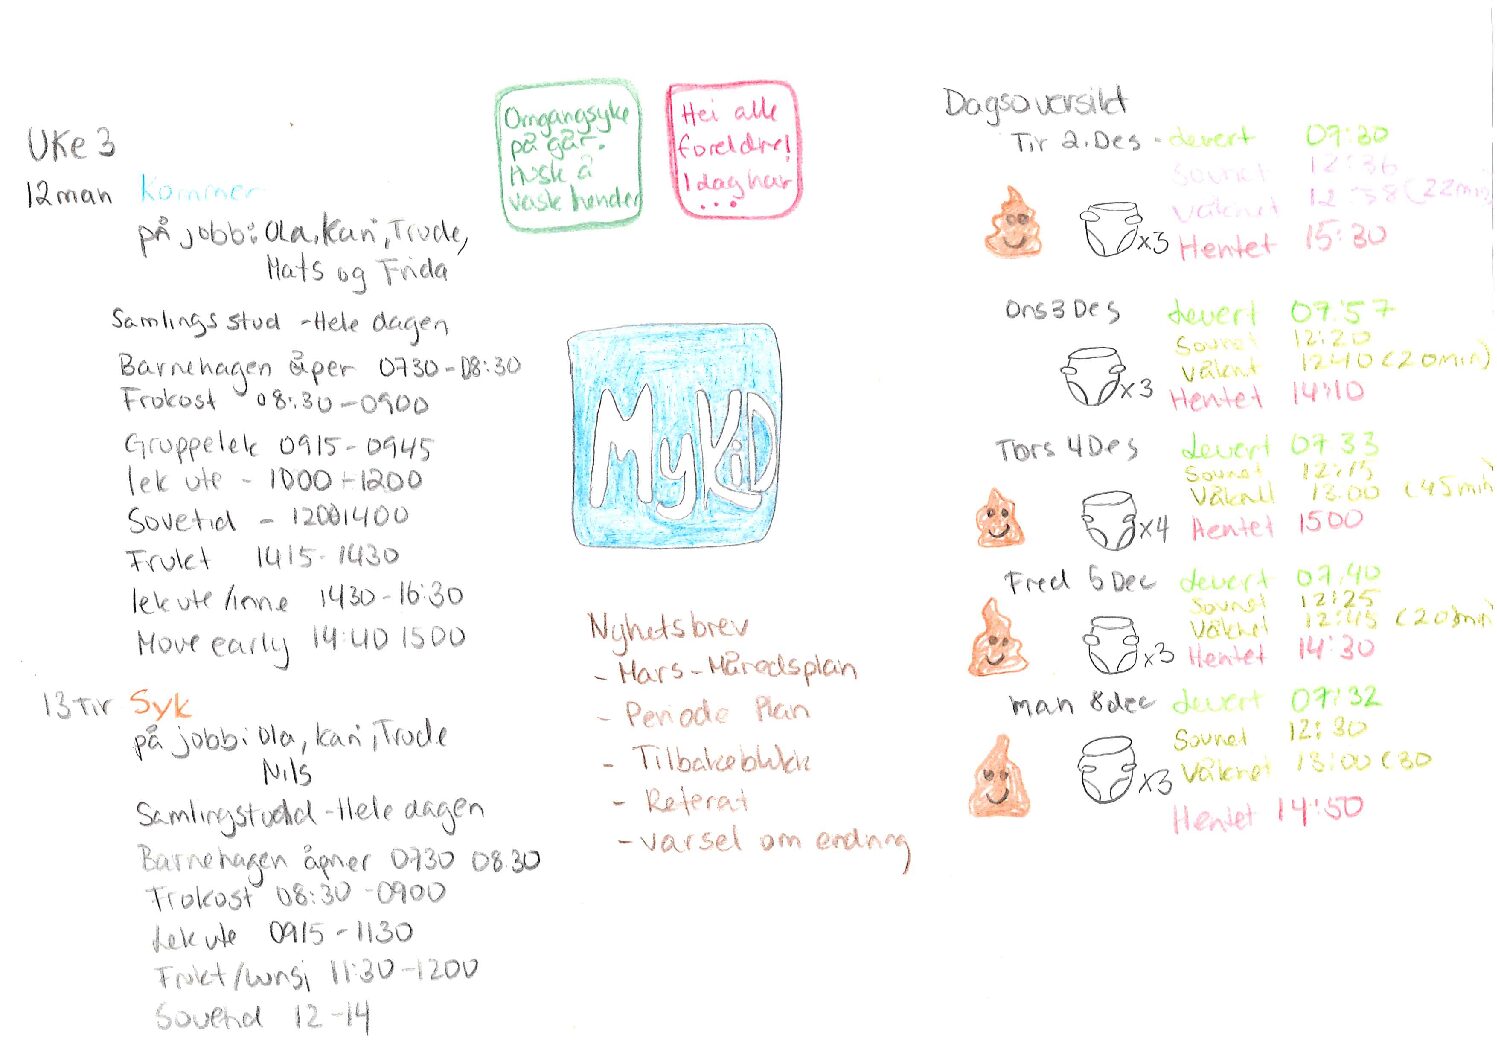 Uke 3
12 man Kommer
på jobb: Ola, Kari, Trude,
Mats og Frida
Samlingsstud - Hele dagen
Barnehagen åper 0730 - 08:30
Frokost 08:30 - 0900
Gruppelek 0915 - 0945
lek ute - 1000 - 1200
Sovetid - 1200 1400
Frukt 1415 - 1430
lek ute/inne 1430 - 16:30
Move early 14:40 1500
13 Tir Syk
på jobb: Ola, Kari, Trude
Nils
Samlingstudd - Hele dagen
Barnehagen åpner 0730 08.30
Frokost 08:30 - 0900
Lek ute 0915 - 1130
Frukt/lunsj 11:30 - 1200
Sovetid 12 - 14
Omgangsyke
på går.
Husk å
vaske hender
Hei alle
foreldre!
I dag har
...
MyKiD
Nyhetsbrev
- Mars - Månedsplan
- Periode Plan
- Tilbakeblikk
- Referat
- varsel om endring
Dagsoversikt
Tir 2. Des - levert 07:30
Sovnet 12:36
Våknet 12:58 (22min)
x3 Hentet 15:30
Ons 3 Des levert 07:57
Sovnet 12:20
Våknt 1240 (20min)
x3 Hentet 14:10
Tors 4 Des levert 07 33
Sovnet 12:15
Våknet 13:00 (45min)
x4 Hentet 1500
Fred 5 Dec levert 07.40
Sovnet 12:25
Våknet 12:45 (20min)
x3 Hentet 14:30
man 8 dec levert 07:32
Sovnet 12:30
Våknet 13:00 (30
x3
Hentet 14:50